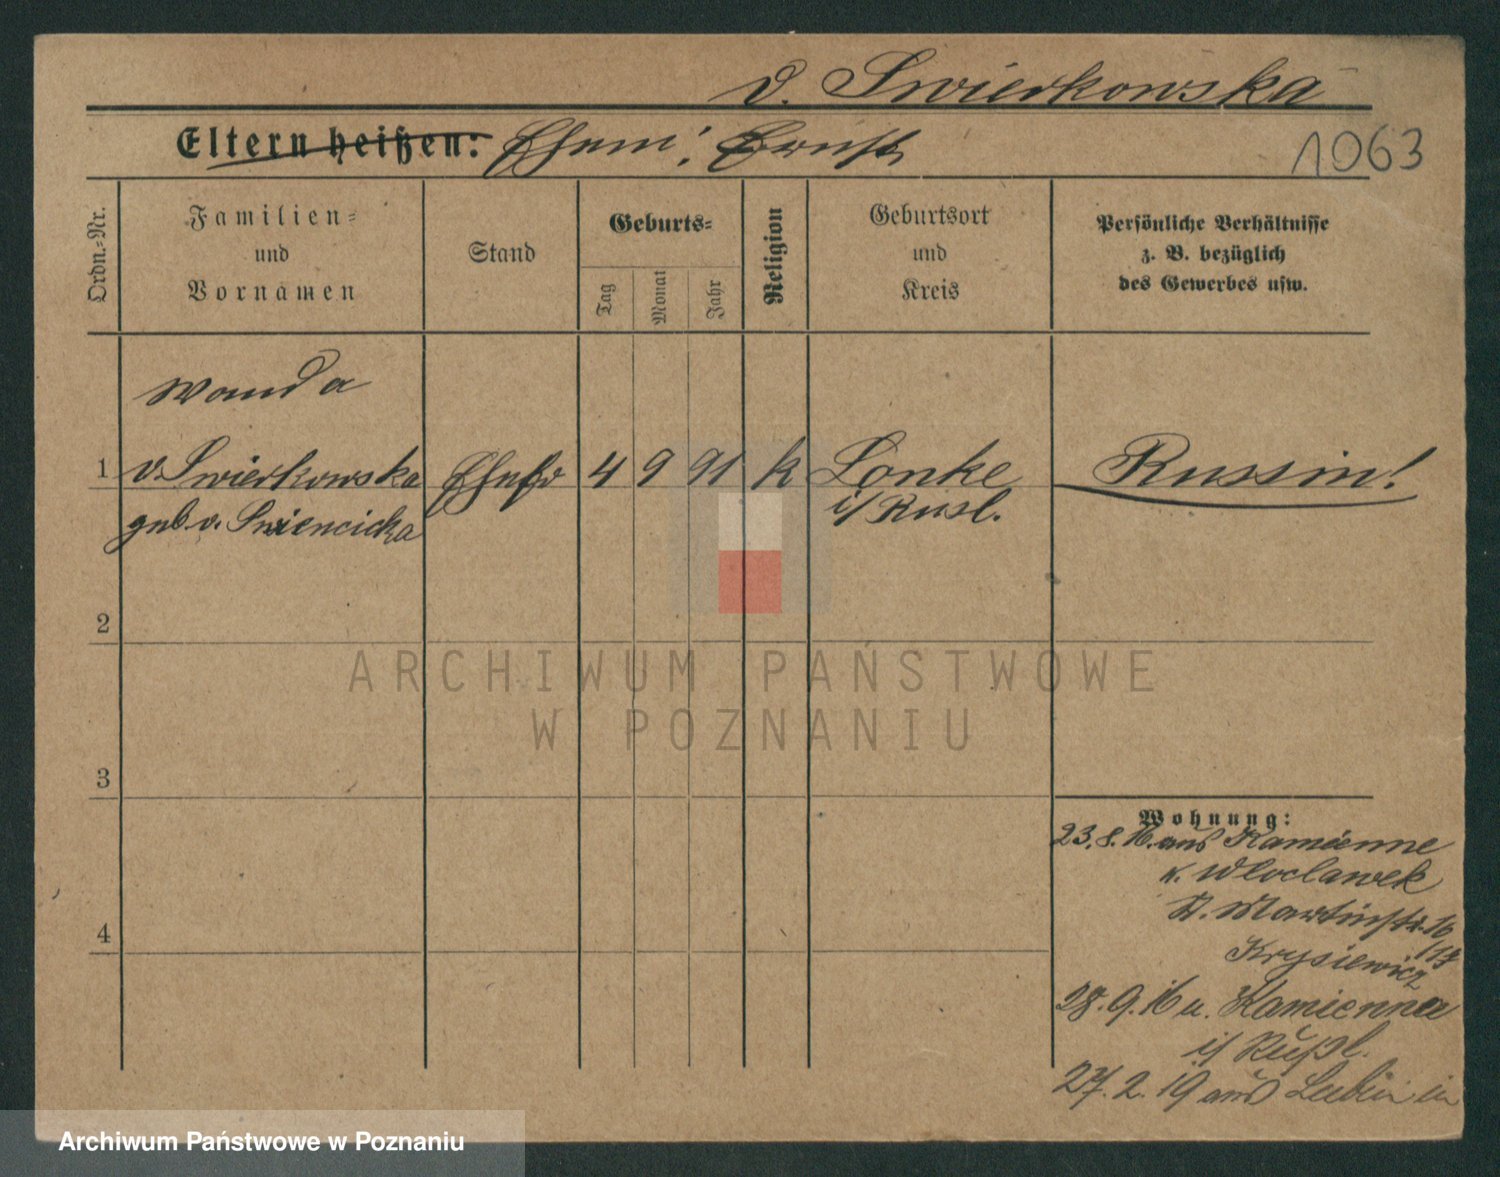 v. Swierkowska
Eltern heißen: Ehem: Ernst
1063
Ordn.=Nr.
Familien=
und
Vornamen
Stand
Geburts=
Tag
Monat
Jahr
Religion
Geburtsort
und
Kreis
Persönliche Verhältnisse
z. B. bezüglich
des Gewerbes usw.
Wanda
1 v. Swierkowska Ehefr 4 9 91 k Lonke Russin!
geb. v. Swiencicka i/ Rusl.
2
3
4
Wohnung:
23.8.16. aus Kamienne
k. Wloclawek
St. Martinstr. 16/17
Krysiewicz
28.9.16 n. Kamienna
i/ Rußl.
27.2.19 aus Lubin in
ARCHIWUM PAŃSTWOWE
W POZNANIU
Archiwum Państwowe w Poznaniu